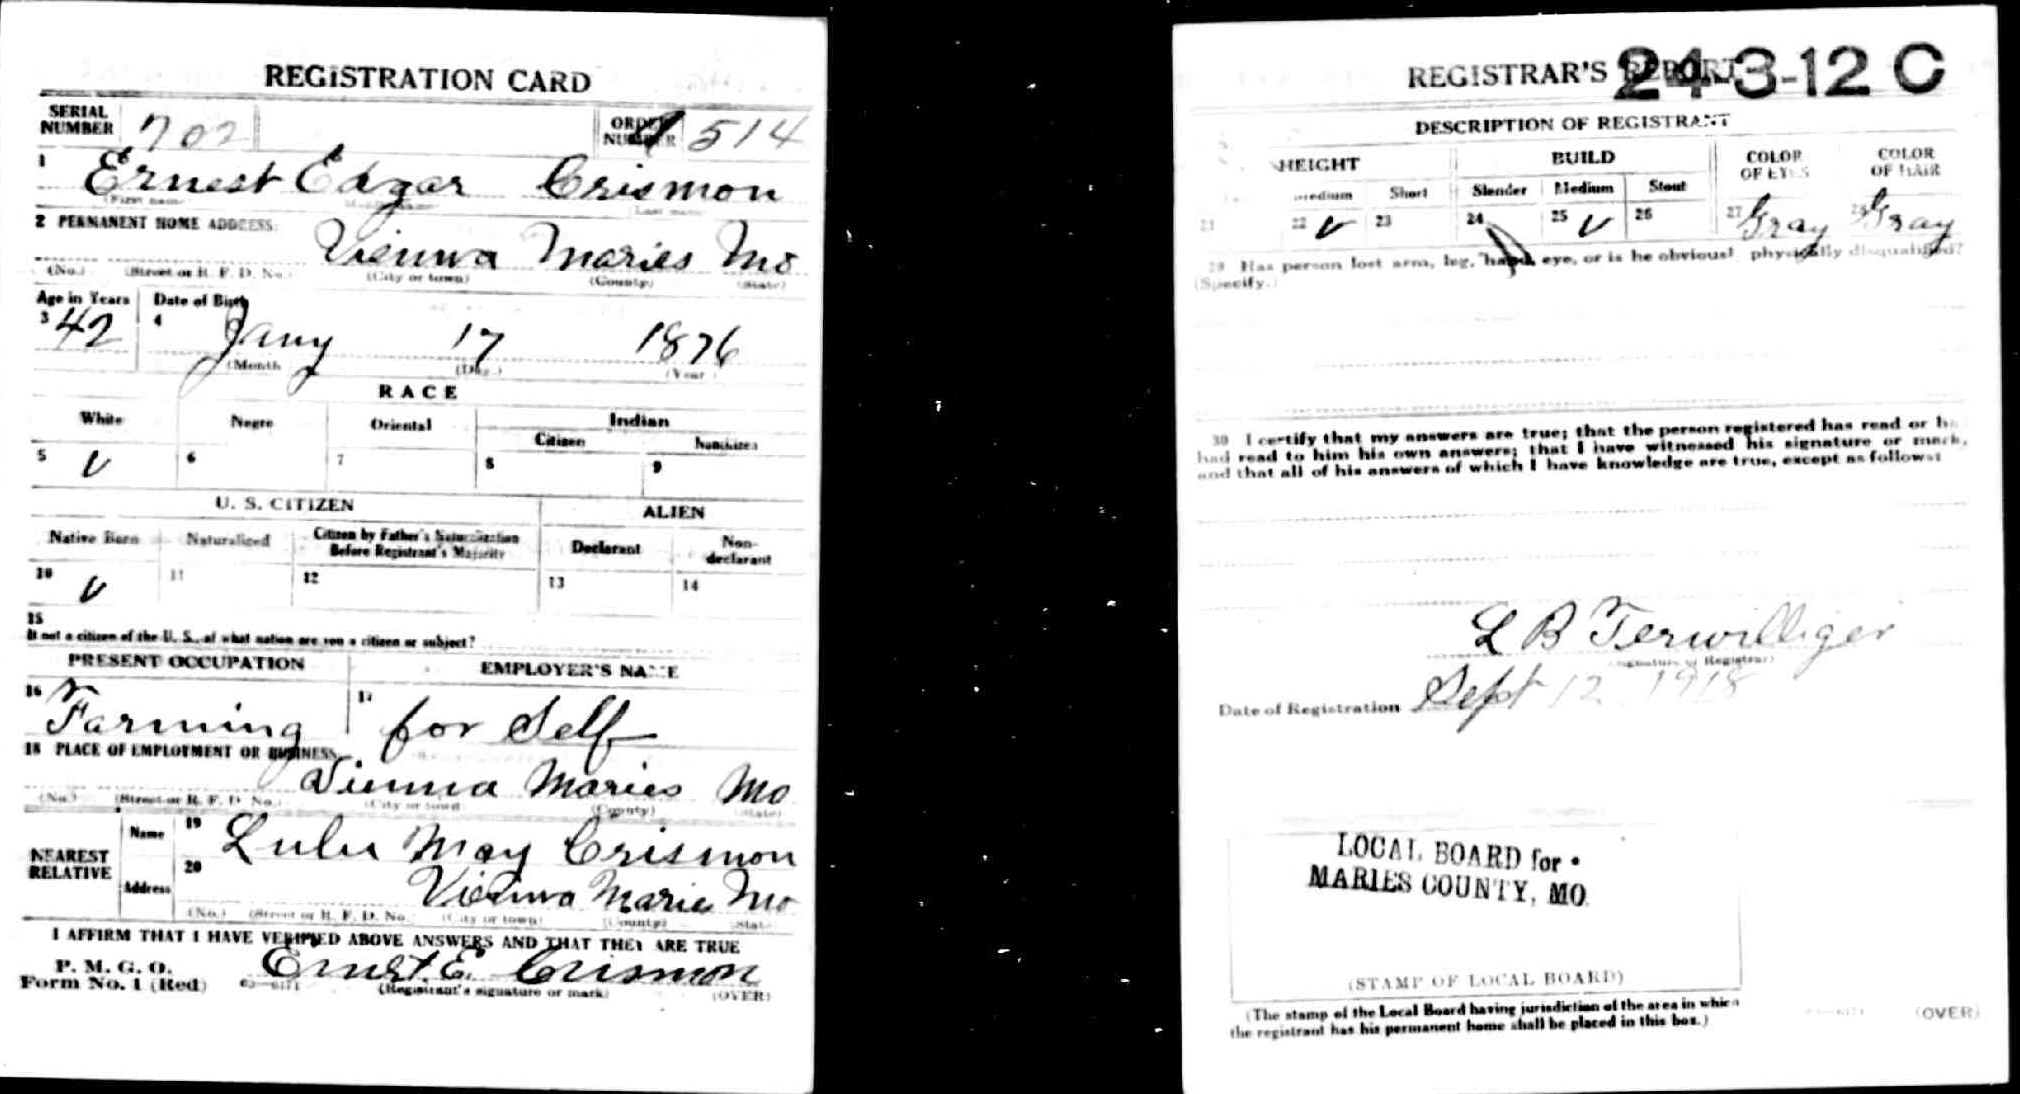 REGISTRATION CARD
SERIAL NUMBER 702 ORDER NUMBER 514
1 Ernest Edgar Crismon
(First name) (Middle name) (Last name)
2 PERMANENT HOME ADDRESS:
Vienna Maries Mo
(No.) (Street or R. F. D. No.) (City or town) (County) (State)
Age in Years Date of Birth
3 42 4 Jany 17 1876
(Month) (Day.) (Year.)
RACE
White Negro Oriental Indian
Citizen Noncitizen
5 V 6 7 8 9
U. S. CITIZEN ALIEN
Native Born Naturalized Citizen by Father's Naturalization Before Registrant's Majority Declarant Non-declarant
10 V 11 12 13 14
15
If not a citizen of the U. S., of what nation are you a citizen or subject?
PRESENT OCCUPATION EMPLOYER'S NAME
16 Farming 17 for Self
18 PLACE OF EMPLOYMENT OR BUSINESS:
Vienna Maries Mo
(No.) (Street or R. F. D. No.) (City or town) (County) (State)
NEAREST RELATIVE
Name 19 Lulu May Crismon
Address 20 Vienna Maries Mo
(No.) (Street or R. F. D. No.) (City or town) (County) (State)
I AFFIRM THAT I HAVE VERIFIED ABOVE ANSWERS AND THAT THEY ARE TRUE
P. M. G. O.
Form No. 1 (Red) Ernst. E. Crismon
(Registrant's signature or mark) (OVER)
REGISTRAR'S REPORT 24-3-12 C
DESCRIPTION OF REGISTRANT
HEIGHT BUILD COLOR OF EYES COLOR OF HAIR
Medium Short Slender Medium Stout
21 22 V 23 24 25 V 26 27 Gray 28 Gray
29 Has person lost arm, leg, hand, eye, or is he obviously physically disqualified?
(Specify.)
30 I certify that my answers are true; that the person registered has read or has
had read to him his own answers; that I have witnessed his signature or mark,
and that all of his answers of which I have knowledge are true, except as follows:
L B Terwilliger
(Signature of Registrar)
Date of Registration Sept 12 1918
LOCAL BOARD for
MARIES COUNTY, MO.
(STAMP OF LOCAL BOARD)
(The stamp of the Local Board having jurisdiction of the area in which
the registrant has his permanent home shall be placed in this box.)
(OVER)